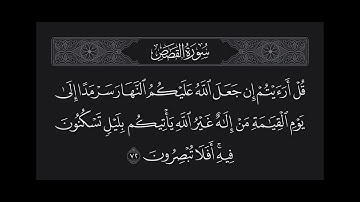 سُورَةُ القَصَصِ
قُلْ أَرَءَيْتُمْ إِن جَعَلَ ٱللَّهُ عَلَيْكُمُ ٱلنَّهَارَ سَرْمَدًا إِلَىٰ
يَوْمِ ٱلْقِيَٰمَةِ مَنْ إِلَٰهٌ غَيْرُ ٱللَّهِ يَأْتِيكُم بِلَيْلٍ تَسْكُنُونَ
فِيهِ ۖ أَفَلَا تُبْصِرُونَ ٧٢